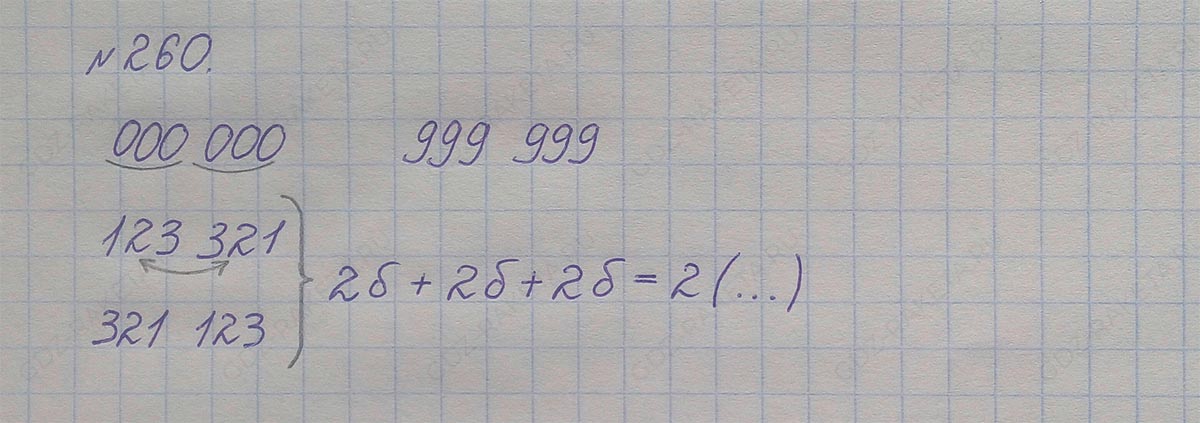 №260.
000 000 999 999
123 321
2б + 2б + 2б = 2(...)
321 123